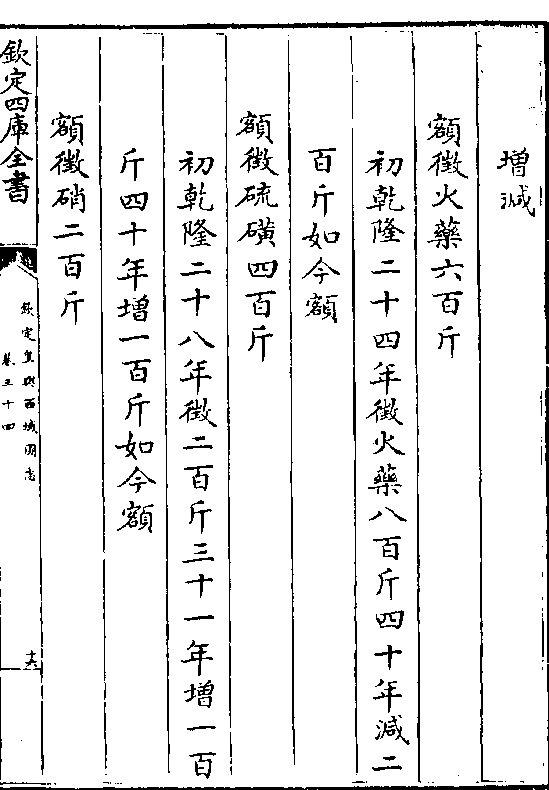 增減
額徵火藥六百斤
初乾隆二十四年徵火藥八百斤四十年減二
百斤如今額
額徵硫磺四百斤
初乾隆二十八年徵二百斤三十一年增一百
斤四十年增一百斤如今額
額徵硝二百斤
欽定四庫全書
欽定皇輿西域圖志
卷三十四
十六